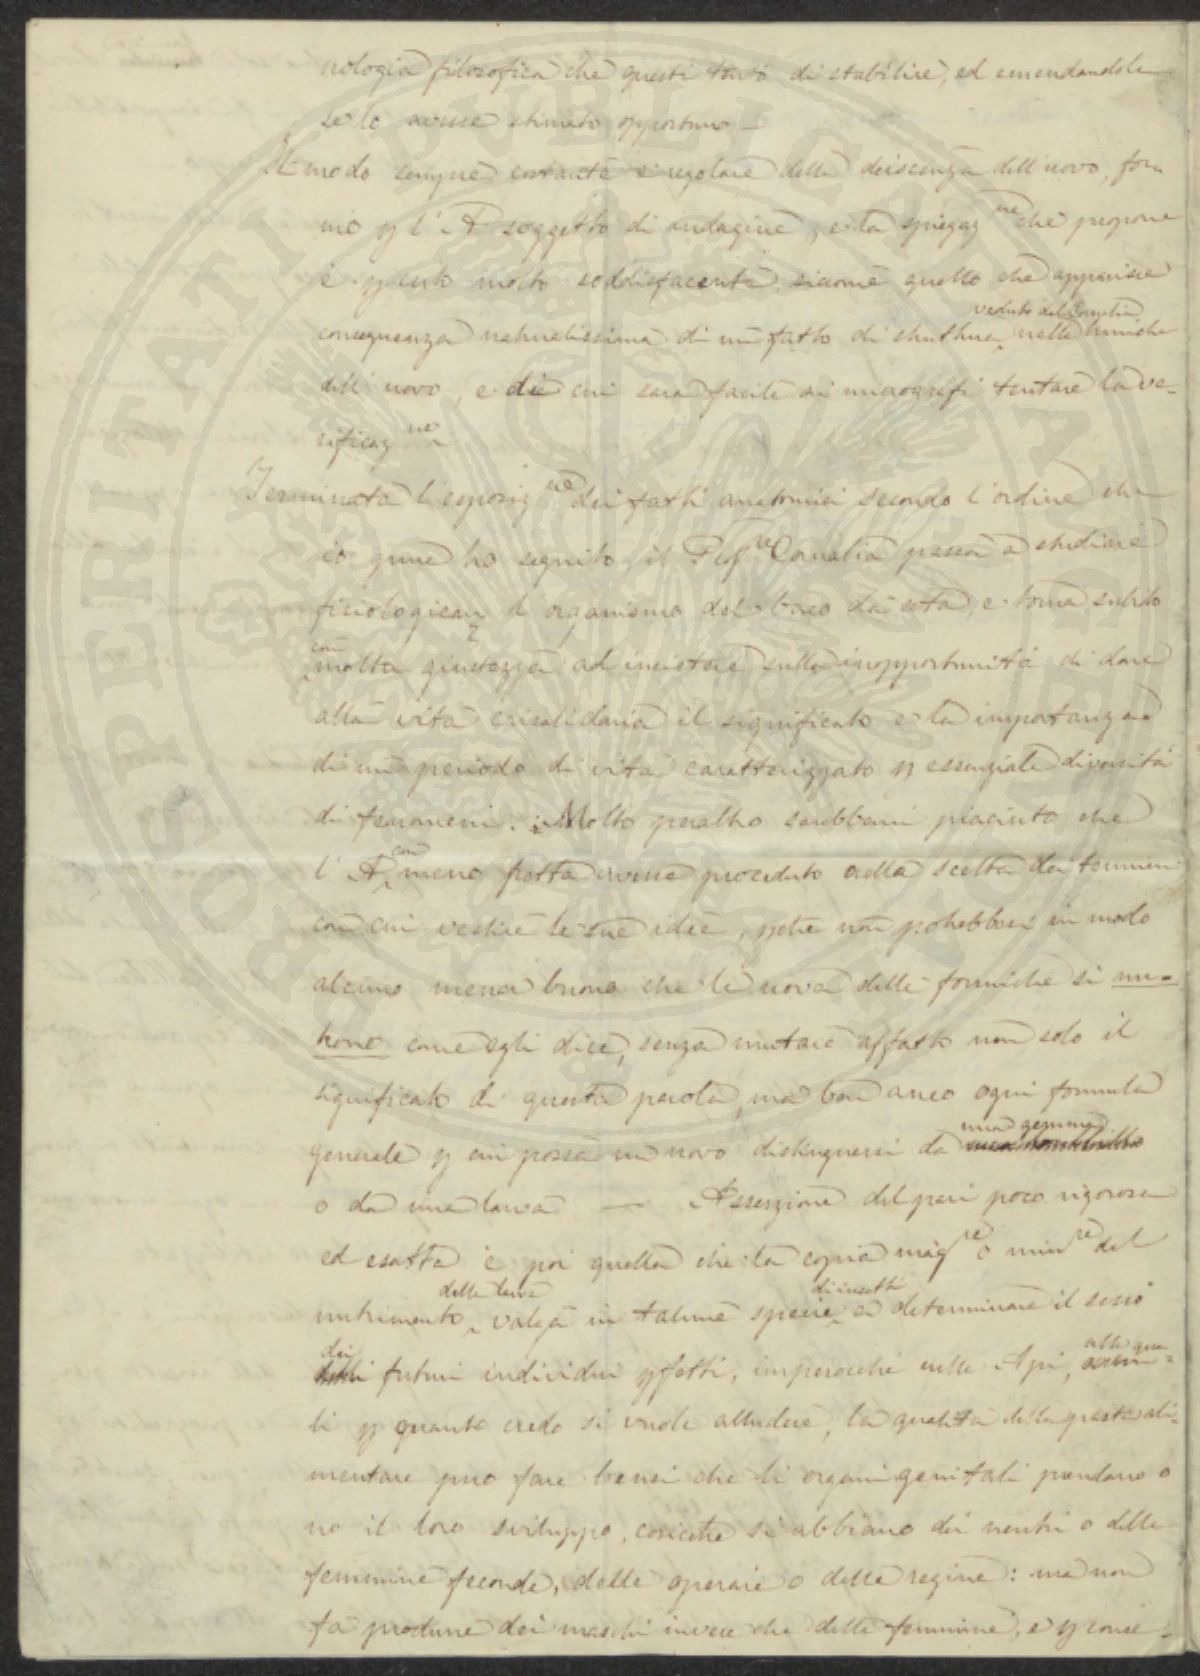 nologia filosofica che questi tentò di stabilire, ed emendandola
se lo avesse stimato opportuno —
Il modo sempre costante e regolare della deiscenza dell'uovo, for-
nio p l'A soggetto di indagine, e la spiegaz.ne che propone
è p certo molto soddisfacente, siccome quello che apparisce
conseguenza naturalissima di un fatto di struttura veduto dal Cornalia nelle tuniche
dell'uovo, e di cui sarà facile ai micrografi tentare la ve-
rificaz.ne
Terminata l'esposiz.ne dei fatti anatomici secondo l'ordine che
io pure ho seguito, il Prof.re Cornalia passa a studiare
fisiologicam. l'organismo del baco da seta, e torna subito
con molta giustezza ad insistere sulla inopportunità di dare
alla vita crisalidaria il significato e la importanza
di un periodo di vita caratterizzato p essenziale diversità
di fenomeni. Molto peraltro sarebbemi piaciuto che
l'A con meno fretta avesse proceduto nella scelta dei termini
con cui vestire le sue idee, pche non potrebbesi in modo
alcuno menar buono che le uova delle formiche si nu-
trono come egli dice, senza mutare affatto non solo il
significato di questa parola, ma ben anco ogni formula
generale p cui possa un uovo distinguersi da una gemma
o da una larva — Asserzione del pari poco rigorosa
ed esatta è poi quella che la copia mag.re o min.re del
nutrimento della larva valga in talune specie di insetti a determinare il sesso
dei futuri individui pfetti, imperocchè nelle Api, alle qua-
li p quanto credo si vuole alludere, la qualità della pasta ali-
mentare può fare bensì che li organi genitali prendano o
no il loro sviluppo, cosicchè si abbiano dei neutri o delle
femmine feconde, delle operaie o delle regine: ma non
fa produrre dei maschi invece che delle femmine, e p conse-